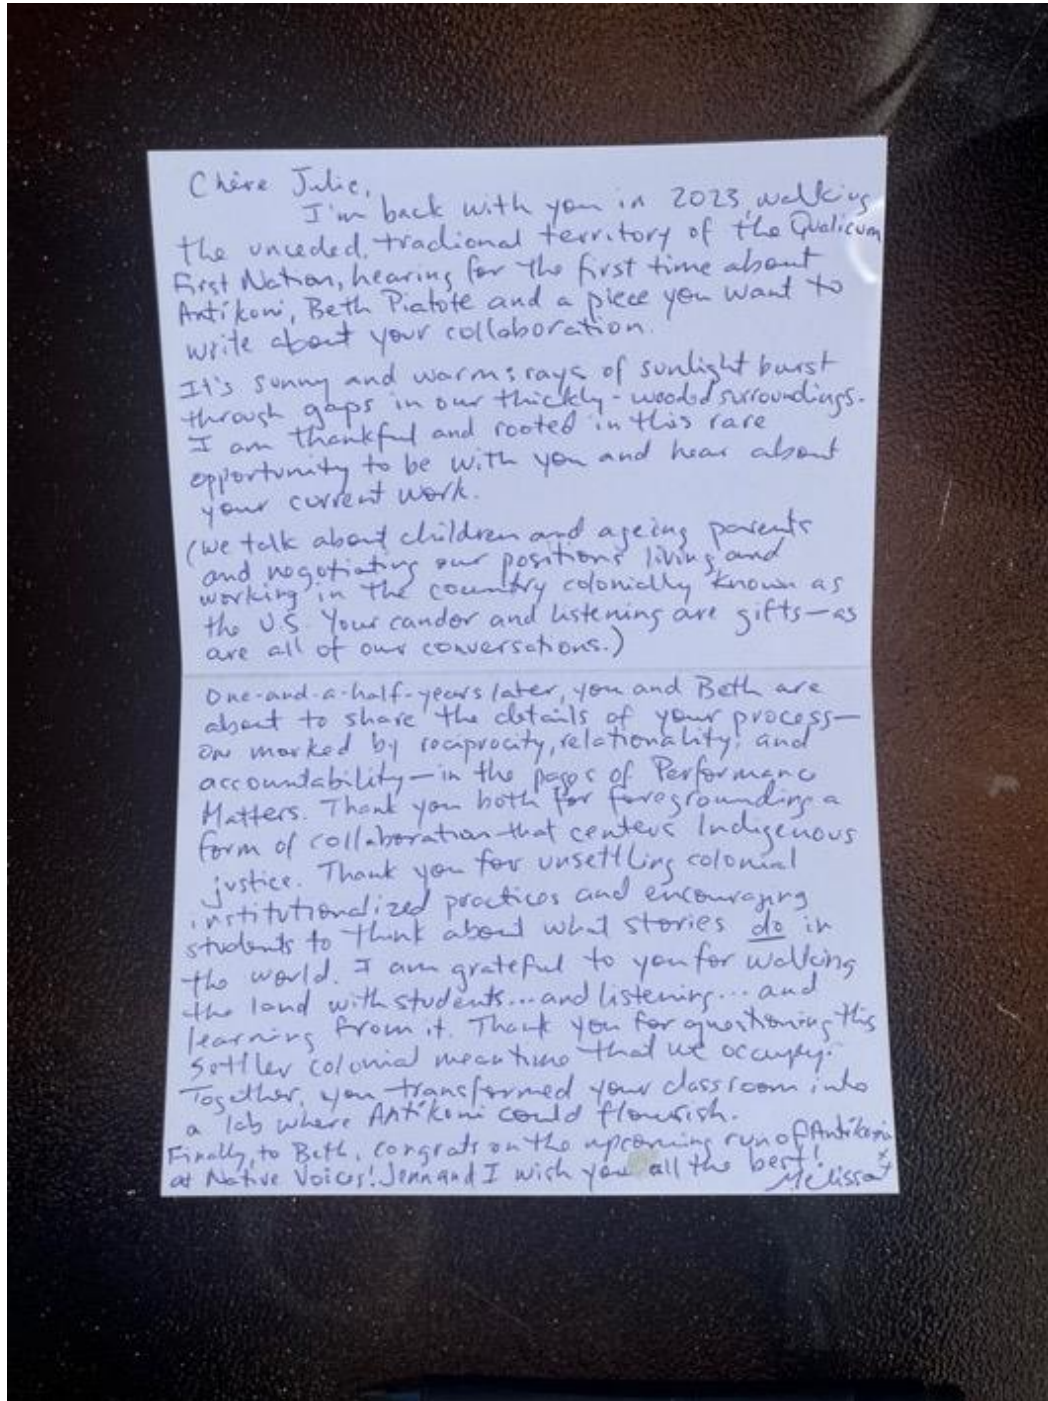 Chère Julie,
I'm back with you in 2023, walking
the unceded, tradional territory of the Qualicum
First Nation, hearing for the first time about
Antíkoni, Beth Piatote and a piece you want to
write about your collaboration.
It's sunny and warm: rays of sunlight burst
through gaps in our thickly-wooded surroundings.
I am thankful and rooted in this rare
opportunity to be with you and hear about
your current work.
(We talk about children and ageing parents
and negotiating our positions living and
working in the country colonially known as
the U.S. Your candor and listening are gifts—as
are all of our conversations.)
One-and-a-half-years later, you and Beth are
about to share the details of your process—
one marked by reciprocity, relationality, and
accountability—in the pages of Performance
Matters. Thank you both for foregrounding a
form of collaboration that centers Indigenous
justice. Thank you for unsettling colonial
institutionalized practices and encouraging
students to think about what stories do in
the world. I am grateful to you for walking
the land with students...and listening...and
learning from it. Thank you for questioning this
settler colonial meantime that we occupy.
Together, you transformed your classroom into
a lab where Antíkoni could flourish.
Finally, to Beth, congrats on the upcoming run of Antíkoni
at Native Voices! Jenn and I wish you all the best!
Melissa